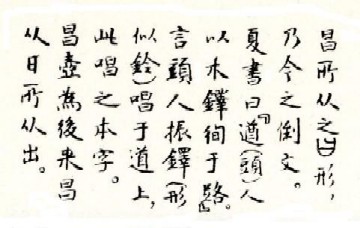 昌所从之㫃形,
乃今之倒文。
夏書曰『遒(頭)人
以木鐸徇于路』。
言頭人振鐸(形
似鈴)唱于道上,
此唱之本字。
昌壺為後来昌
从日所从出。